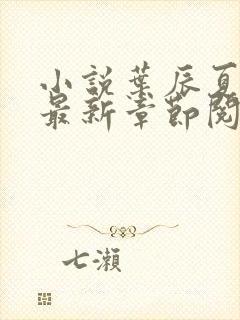 小説葉辰夏
最新章節閱
七瀬